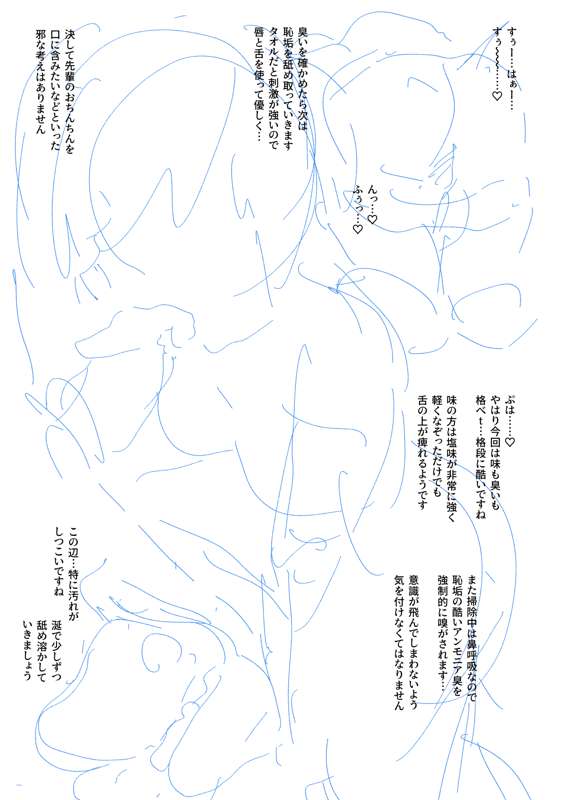 すぅー…はぁー…
すぅ～～……♡
臭いを確かめたら次は
恥垢を舐め取っていきます
タオルだと刺激が強いので
唇と舌を使って優しく…
決して先輩のおちんちんを
口に含みたいなどといった
邪な考えはありません
んっ…♡
ふぅっ…♡
ぷは……♡
やはり今回は味も臭いも
格べｔ…格段に酷いですね
味の方は塩味が非常に強く
軽くなぞっただけでも
舌の上が痺れるようです
また掃除中は鼻呼吸なので
恥垢の酷いアンモニア臭を
強制的に嗅がされます…
意識が飛んでしまわないよう
気を付けなくてはなりません
この辺…特に汚れが
しつこいですね
涎で少しずつ
舐め溶かして
いきましょう